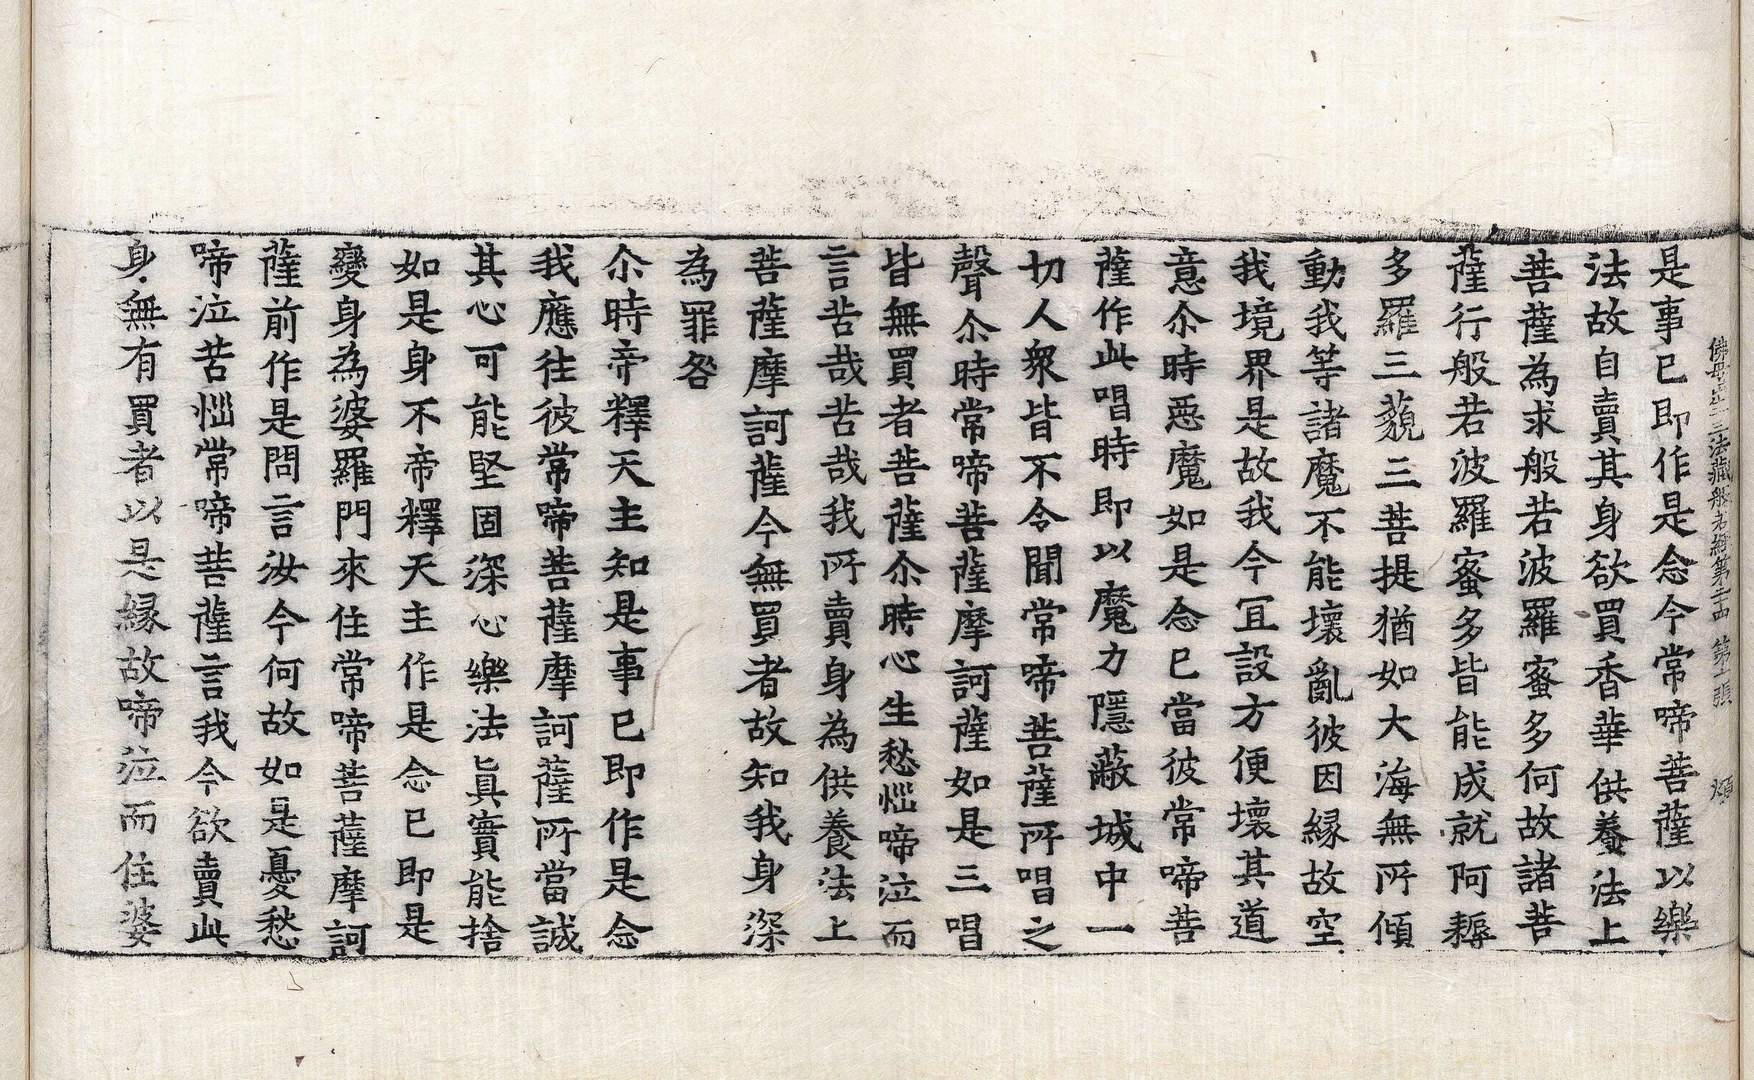 佛母出生三法藏般若經第二十四 第 張
是事已即作是念今常啼菩薩以樂
法故自賣其身欲買香華供養法上
菩薩為求般若波羅蜜多何故諸菩
薩行般若波羅蜜多皆能成就阿耨
多羅三藐三菩提猶如大海無所傾
動我等諸魔不能壞亂彼因緣故空
我境界是故我今冝設方便壞其道
意尒時惡魔如是念已當彼常啼菩
薩作此唱時即以魔力隱蔽城中一
切人衆皆不令聞常啼菩薩所唱之
聲尒時常啼菩薩摩訶薩如是三唱
皆無買者菩薩尒時心生愁惱啼泣而
言苦哉苦哉我所賣身為供養法上
菩薩摩訶薩今無買者故知我身深
為罪咎
尒時帝釋天主知是事已即作是念
我應往彼常啼菩薩摩訶薩所當誠
其心可能堅固深心樂法真實能捨
如是身不帝釋天主作是念已即是
變身為婆羅門來住常啼菩薩摩訶
薩前作是問言汝今何故如是憂愁
啼泣苦惱常啼菩薩言我今欲賣此
身無有買者以是緣故啼泣而住婆